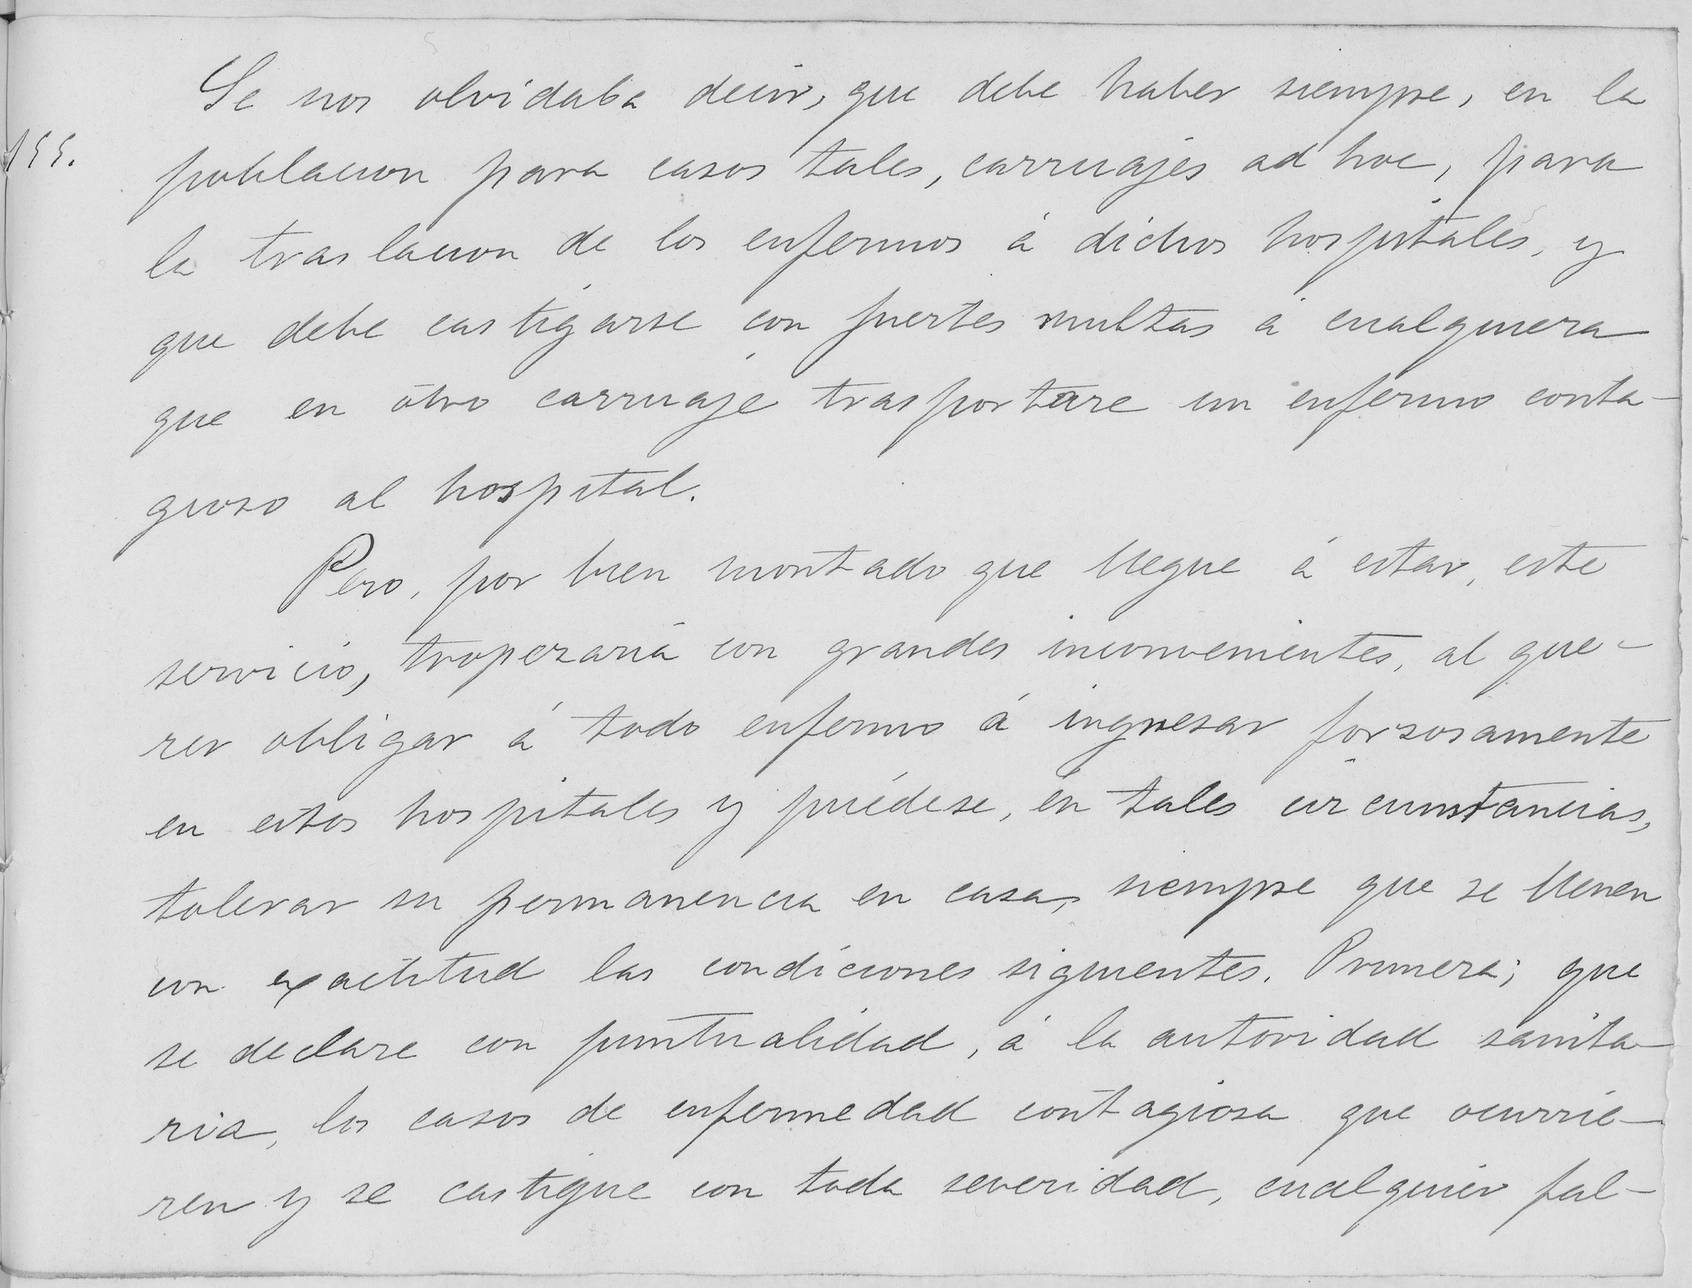 Se nos olvidaba decir, que debe haber siempre, en la
155.
poblacion para casos tales, carruajes ad hoc, para
la traslacion de los enfermos á dichos hospitales, y
que debe castigarse con fuertes multas á cualquiera
que en otro carruaje trasportare un enfermo conta-
gioso al hospital.
Pero, por bien montado que llegue á estar, este
servicio, tropezaria con grandes inconvenientes, al que-
rer obligar á todo enfermo á ingresar forsosamente
en estos hospitales y puédese, en tales circunstancias,
tolerar su permanencia en casa, siempre que se llenen
con exactitud las condiciones siguientes. Primera; que
se declare con puntualidad, á la autoridad sanita-
ria, los casos de enfermedad contagiosa que ocurrie-
ren y se castigue con toda severidad, cualquier fal-